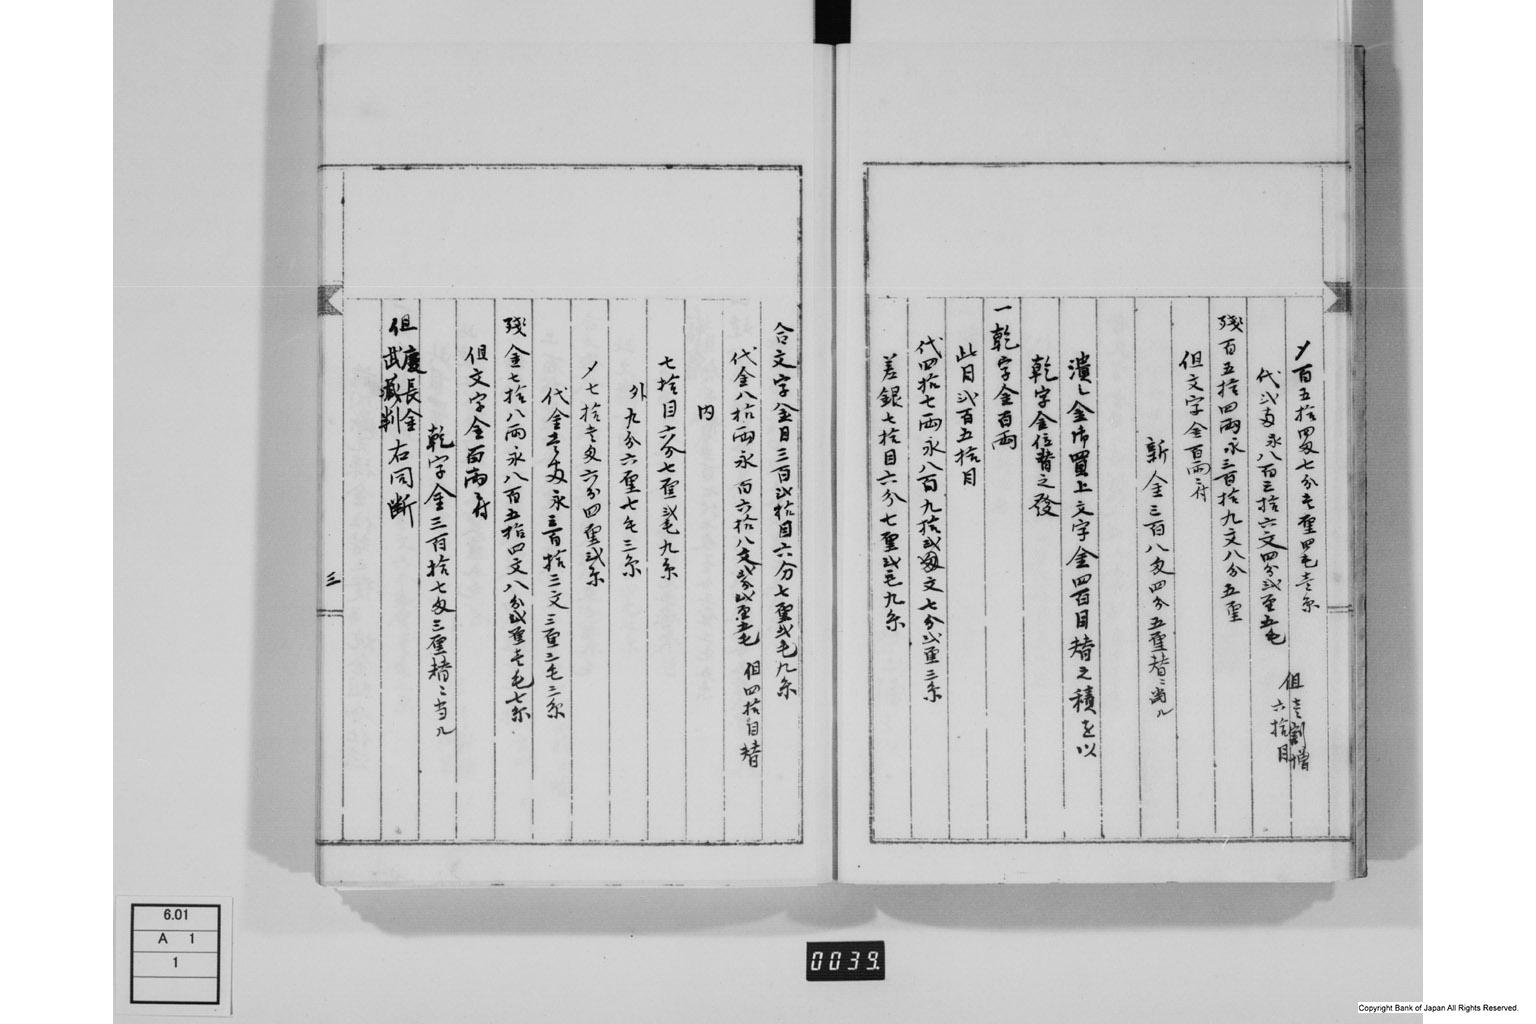 〆百五拾四匁七分壱厘四毛壱糸
代弐両永八百三拾六文四分弐厘五毛
但壱割増
六拾目
残百五拾四両永三百拾九文八分五厘
但文字金百両ニ付
新金三百八匁四分五厘替ニ当ル
潰シ金御買上文字金四百目替之積を以
乾字金位替之發
一乾字金百両
此目弐百五拾目
代四拾七両永八百九拾弐文七分弐厘三糸
差銀七拾目六分七厘弐毛九糸
合文字金目三百弐拾目六分七厘弐毛九糸
代金八拾両永百六拾八文弐分弐厘五毛 但四拾目替
内
七拾目六分七厘弐毛九糸
外九分六厘七毛三糸
〆七拾壱匁六分四厘弐糸
代金壱両永三百拾三文三厘三毛三糸
残金七拾八両永八百五拾四文八分弐厘壱毛七糸
但文字金百両ニ付
乾字金三百拾七匁三厘替ニ当ル
慶長金
但武蔵判右同断
三
6.01
A 1
1
0039
Copyright Bank of Japan All Rights Reserved.